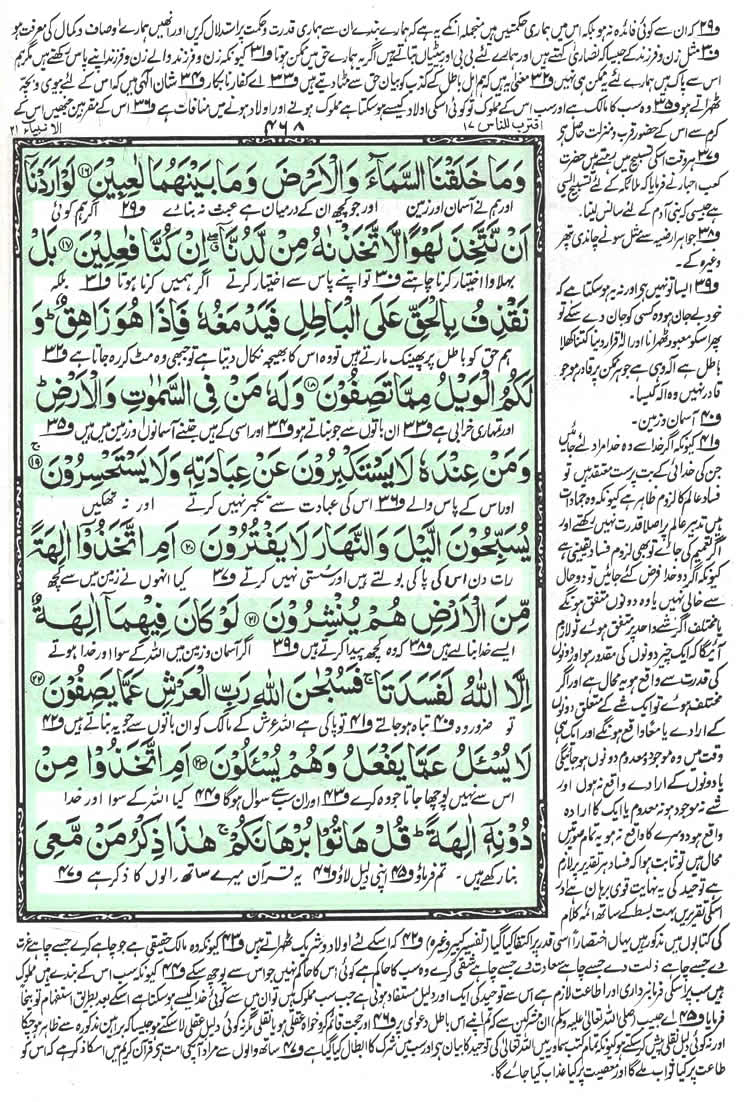 و۲۹ کہ ان سے کوئی فائدہ نہ ہو بلکہ اس میں ہماری حکمتیں ہیں منجملہ انکے یہ ہے کہ ہمارے بندے ان سے ہماری قدرت و حکمت پر استدلال کریں اور انھیں ہمارے اوصاف و کمال کی معرفت ہو
و۳۰ مثل زن و فرزند کے جیسا کہ نصاریٰ کہتے ہیں اور ہمارے لئے بی بی اور بیٹیاں بتاتے ہیں اگر یہ ہمارے حق میں ممکن ہوتا و۳۱ کیونکہ زن و فرزند والے زن و فرزند اپنے پاس رکھتے ہیں مگر ہم
اس سے پاک ہیں ہمارے لئے یہ ممکن ہی نہیں و۳۲ معنیٰ یہ ہیں کہ ہم اہل باطل کے کذب کو بیان حق سے مٹا دیتے ہیں و۳۳ اے کفار نابکار و۳۴ شان الٰہی میں کہ اس کے لئے بیوی و بچہ
ٹھہراتے ہو و۳۵ وہ سب کا مالک ہے اور سب اس کے مملوک تو کوئی اسکی اولاد کیسے ہوسکتا ہے مملوک ہونے اور اولاد ہونے میں منافات ہے و۳۶ اس کے مقربین جنھیں اس کے
اقترب للناس ۱۷ ۴۶۸ الانبیاء ۲۱
کرم سے اس کے حضور قرب و منزلت حاصل ہے
و۳۷ ہر وقت اسکی تسبیح میں رہتے ہیں حضرت
کعب احبار نے فرمایا کہ ملائکہ کے لئے تسبیح ایسی
ہے جیسی کہ بنی آدم کے لئے سانس لینا۔
و۳۸ جواہر ارضیہ سے مثل سونے چاندی پتھر
وغیرہ کے۔
و۳۹ ایسا تو نہیں ہے اور نہ یہ ہوسکتا ہے کہ
خود بے جان ہو وہ کسی کو جان دے سکے تو
پھر اسکو معبود ٹھہرانا اور الٰہ قرار دینا کتنا کھلا
باطل ہے الٰہ وہی ہے جو ہر ممکن پر قادر ہو جو
قادر نہیں وہ الٰہ کیسا۔
و۴۰ آسمان و زمین۔
و۴۱ کیونکہ اگر خدا سے وہ خدا مراد لئے جائیں
جن کی خدائی کے بت پرست معتقد ہیں تو
فساد عالم کا لزوم ظاہر ہے کیونکہ وہ جمادات
ہیں تدبیر عالم پر اصلا قدرت نہیں رکھتے اور
اگر تعمیم کی جائے تو بھی لزوم فساد یقینی ہے
کیونکہ اگر دو خدا فرض کئے جائیں تو دو حال
سے خالی نہیں یا وہ دونوں متفق ہونگے
یا مختلف اگر شے واحد پر متفق ہوئے تو لازم
آئیگا کہ ایک چیز دونوں کی مقدور ہو اور دونوں
کی قدرت سے واقع ہو یہ محال ہے اور اگر
مختلف ہوئے تو ایک شے کے متعلق دونوں
کے ارادے یا معًا واقع ہونگے اور ایک ہی
وقت میں وہ موجود و معدوم دونوں ہو جائیگی
یا دونوں کے ارادے واقع نہ ہوں اور
شے نہ موجود ہو نہ معدوم یا ایک کا ارادہ
واقع ہو دوسرے کا واقع نہ ہو یہ تمام صورتیں
محال ہیں تو ثابت ہوا کہ فساد ہر تقدیر پر لازم
ہے توحید کی یہ نہایت قوی برہان ہے اور
اسکی تقریریں بہت بسط کے ساتھ ائمہ کلام
وَمَا خَلَقْنَا السَّمَآءَ وَالْاَرْضَ وَمَا بَيْنَهُمَا لٰعِبِيْنَ ۝۱۶ لَوْ اَرَدْنَآ
اور ہم نے آسمان اور زمین اور جو کچھ ان کے درمیان ہے عبث نہ بنائے و۲۹ اگر ہم کوئی
اَنْ نَّتَّخِذَ لَهْوًا لَّاتَّخَذْنٰهُ مِنْ لَّدُنَّاۤ ۖ اِنْ كُنَّا فٰعِلِيْنَ ۝۱۷ بَلْ
بہلاوا اختیار کرنا چاہتے و۳۰ تو اپنے پاس سے اختیار کرتے اگر ہمیں کرنا ہوتا و۳۱ بلکہ
نَقْذِفُ بِالْحَقِّ عَلَى الْبَاطِلِ فَيَدْمَغُهٗ فَاِذَا هُوَ زَاهِقٌ ؕ وَ
ہم حق کو باطل پر پھینک مارتے ہیں تو وہ اس کا بھیجہ نکال دیتا ہے تو جبھی وہ مٹ کر رہ جاتا ہے و۳۲
لَكُمُ الْوَيْلُ مِمَّا تَصِفُوْنَ ۝۱۸ وَلَهٗ مَنْ فِى السَّمٰوٰتِ وَالْاَرْضِ ؕ
اور تمہاری خرابی ہے و۳۳ ان باتوں سے جو بناتے ہو و۳۴ اور اسی کے ہیں جتنے آسمانوں اور زمین میں ہیں و۳۵
وَمَنْ عِنْدَهٗ لَا يَسْتَكْبِرُوْنَ عَنْ عِبَادَتِهٖ وَلَا يَسْتَحْسِرُوْنَ ۝۱۹ ج
اور اس کے پاس والے و۳۶ اس کی عبادت سے تکبر نہیں کرتے اور نہ تھکیں
يُسَبِّحُوْنَ الَّيْلَ وَالنَّهَارَ لَا يَفْتُرُوْنَ ۝۲۰ اَمِ اتَّخَذُوْٓا اٰلِهَةً
رات دن اس کی پاکی بولتے ہیں اور سستی نہیں کرتے و۳۷ کیا انہوں نے زمین میں سے کچھ
مِّنَ الْاَرْضِ هُمْ يُنْشِرُوْنَ ۝۲۱ لَوْ كَانَ فِيْهِمَآ اٰلِهَةٌ
ایسے خدا بنا لئے ہیں و۳۸ کہ وہ کچھ پیدا کرتے ہیں و۳۹ اگر آسمان و زمین میں اللہ کے سوا اور خدا ہوتے
اِلَّا اللّٰهُ لَفَسَدَتَا ۚ فَسُبْحٰنَ اللّٰهِ رَبِّ الْعَرْشِ عَمَّا يَصِفُوْنَ ۝۲۲
تو ضرور وہ و۴۰ تباہ ہو جاتے و۴۱ تو پاکی ہے اللہ عرش کے مالک کو ان باتوں سے جو یہ بناتے ہیں و۴۲
لَا يُسْـَٔلُ عَمَّا يَفْعَلُ وَهُمْ يُسْـَٔلُوْنَ ۝۲۳ اَمِ اتَّخَذُوْا مِنْ
اس سے نہیں پوچھا جاتا جو وہ کرے و۴۳ اور ان سب سے سوال ہوگا و۴۴ کیا اللہ کے سوا اور خدا
دُوْنِهٖٓ اٰلِهَةً ؕ قُلْ هَاتُوْا بُرْهَانَكُمْ ۚ هٰذَا ذِكْرُ مَنْ مَّعِيَ
بنا رکھے ہیں۔ تم فرماؤ و۴۵ اپنی دلیل لاؤ و۴۶ یہ قرآن میرے ساتھ والوں کا ذکر ہے و۴۷
کی کتابوں میں مذکور ہیں یہاں اختصارًا اسی قدر پر اکتفا کیا گیا (تفسیر کبیر وغیرہ) و۴۲ کہ اسکے لئے اولاد و شریک ٹھہراتے ہیں و۴۳ کیونکہ وہ مالک حقیقی ہے جو چاہے کرے جسے چاہے عزت
دے جسے چاہے ذلت دے جسے چاہے سعادت دے جسے چاہے شقی کرے وہ سب کا حاکم ہے کوئی اس کا حاکم نہیں جو اس سے پوچھ سکے و۴۴ کیونکہ سب اس کے بندے ہیں مملوک
ہیں سب پر اسکی فرمانبرداری اور اطاعت لازم ہے اس سے توحید کی ایک اور دلیل مستفاد ہوتی ہے جب سب مملوک ہیں تو ان میں سے کوئی خدا کیسے ہوسکتا ہے اسکے بعد بطریق استفہام توبیخًا
فرمایا و۴۵ اے حبیب (صلی اللہ تعالیٰ علیہ وسلم) ان مشرکین سے کہ تم اپنے اس باطل دعویٰ پر و۴۶ اور حجت قائم کرو خواہ عقلی ہو یا نقلی مگر نہ کوئی دلیل عقلی لا سکتے ہو جیسا کہ براہین مذکورہ سے ظاہر ہو چکا
اور نہ کوئی دلیل نقلی پیش کرسکتے ہو کیونکہ تمام کتب سماویہ میں اللہ تعالیٰ کی توحید کا بیان ہے اور سب میں شرک کا ابطال کیا گیا ہے و۴۷ ساتھ والوں سے مراد آپکی امت ہے قرآن کریم میں اسکا ذکر ہے کہ اس کو
طاعت پر کیا ثواب ملے گا اور معصیت پر کیا عذاب کیا جائے گا۔